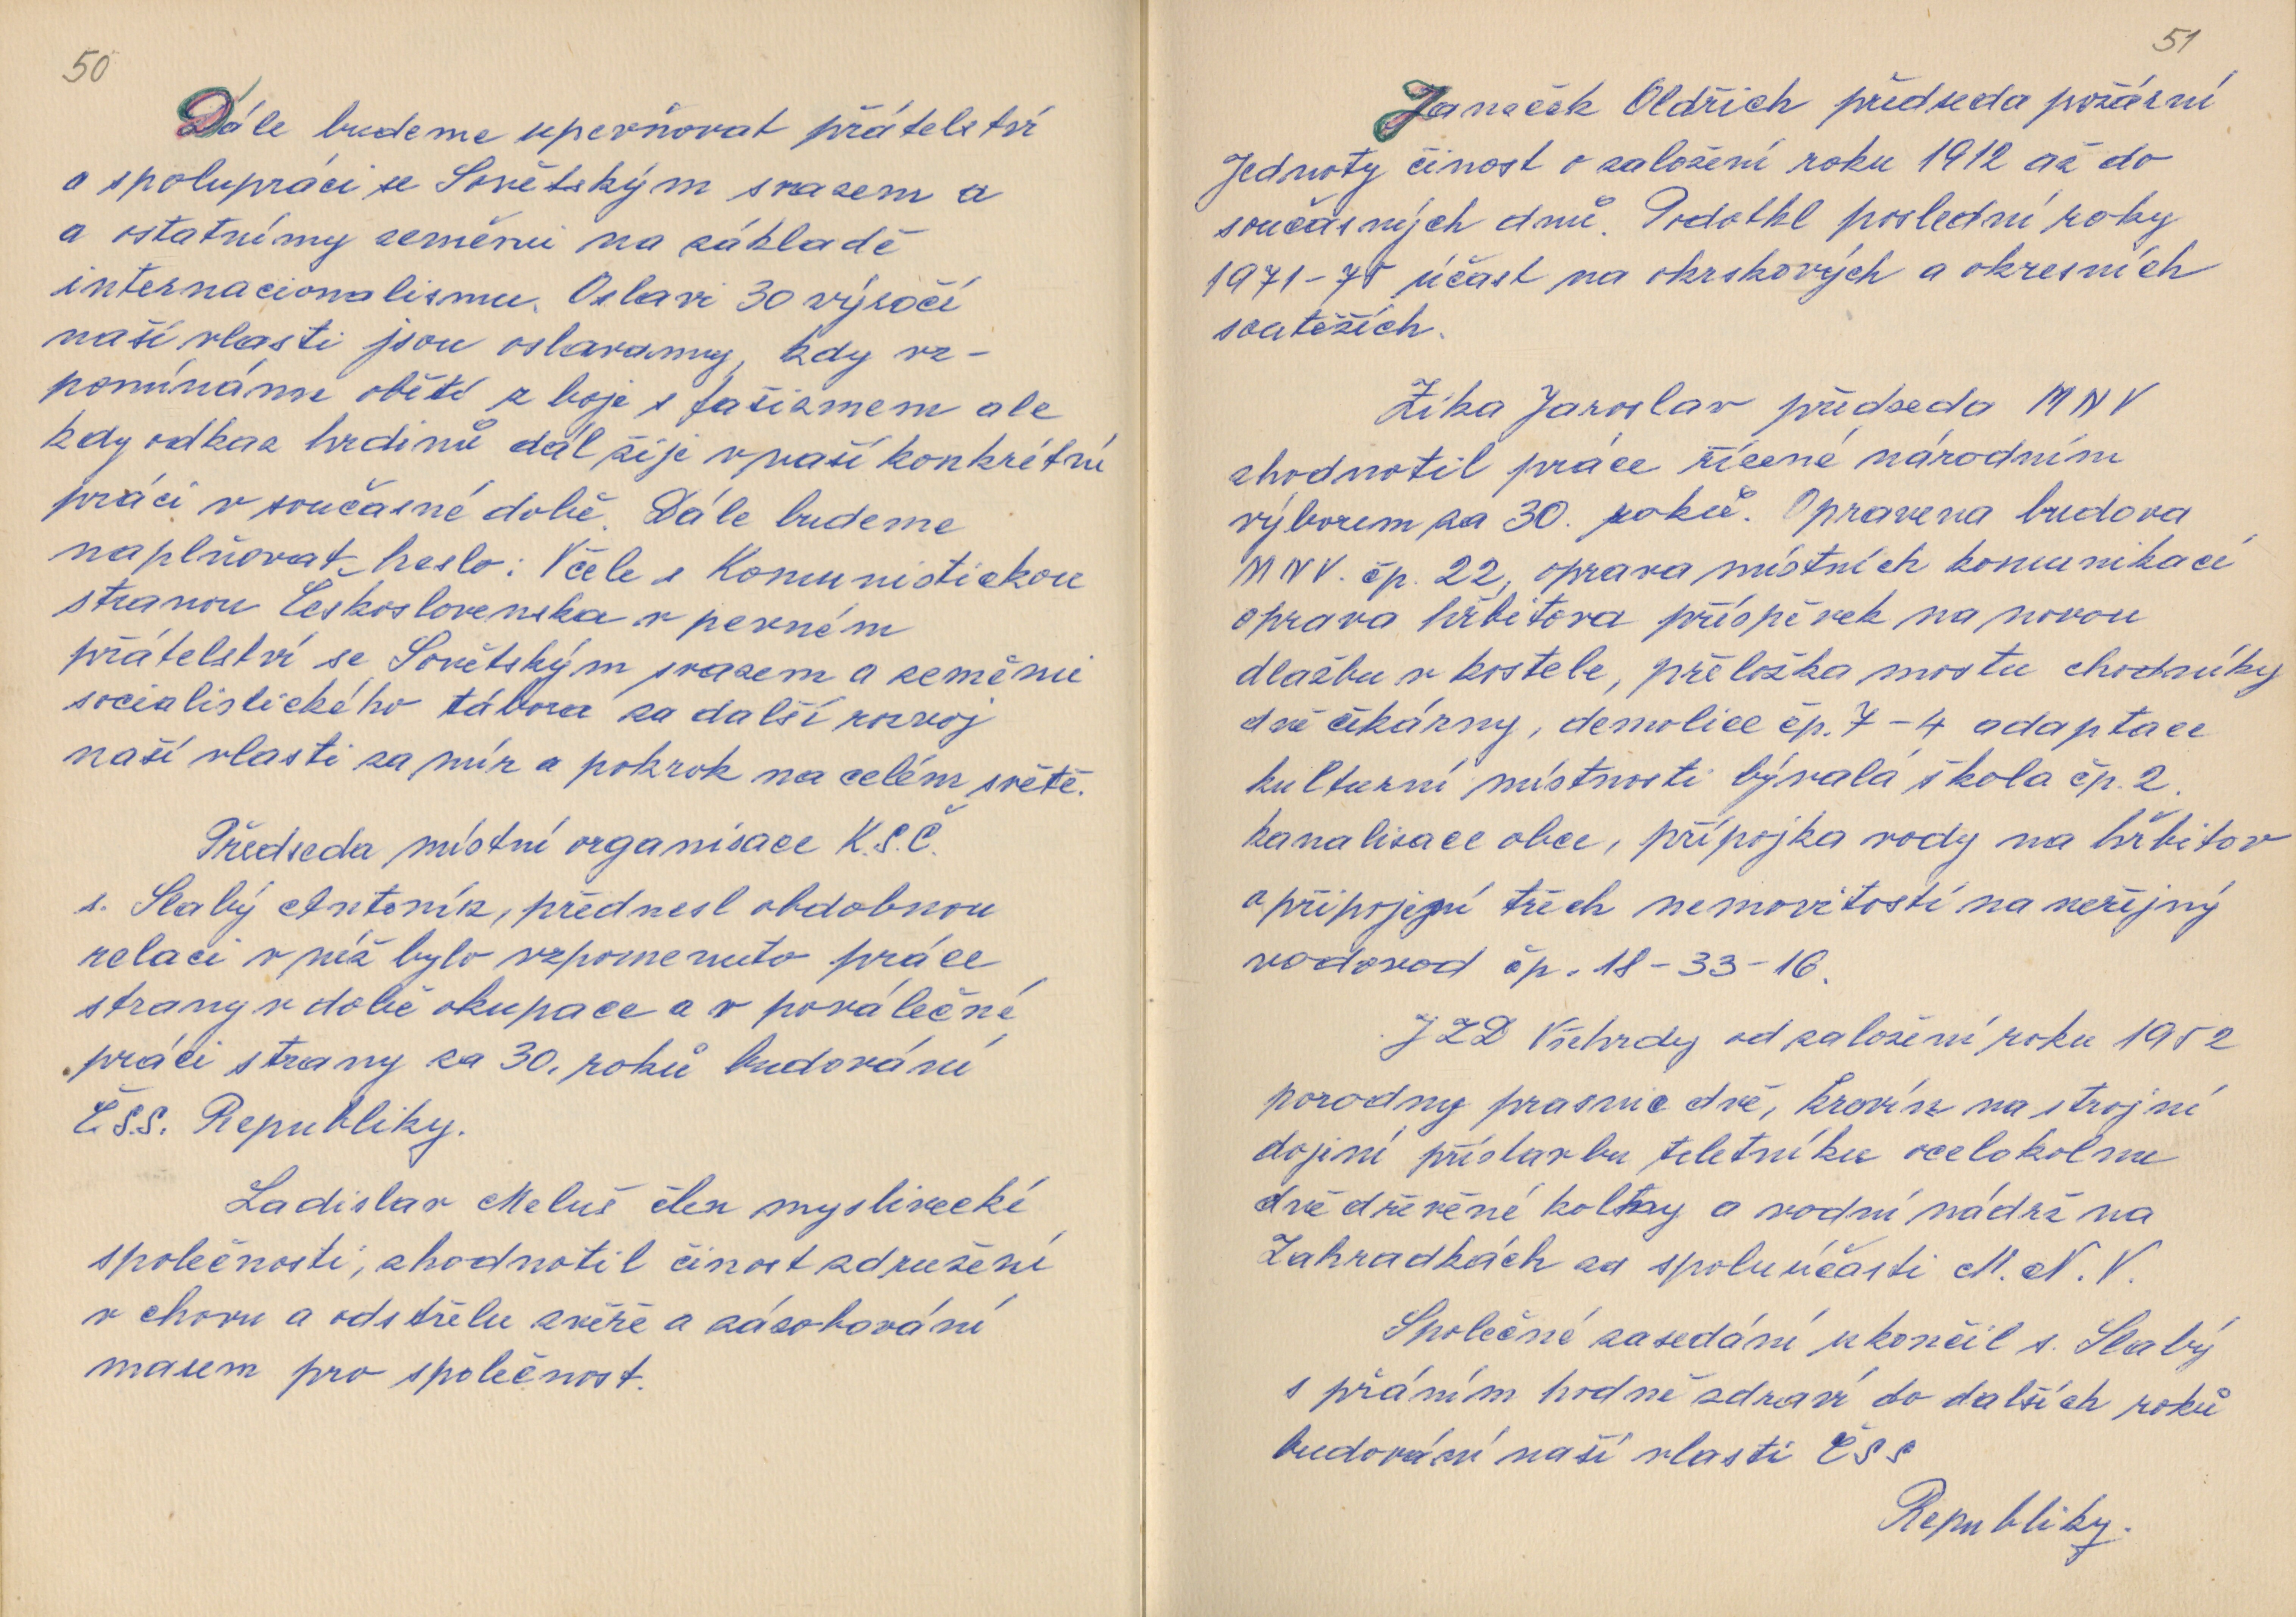 50
Dále budeme upevňovat přátelství
a spolupráci se Sovětským svazem a
a ostatnímy zeměmi na základě
internacionalismu. Oslavi 30 výročí
naší vlasti jsou oslavamy, kdy vz-
pomínáme obětí z boje s fašizmem ale
kdy odkaz hrdinů dál žije v naší konkrétní
práci v současné době. Dále budeme
naplňovat heslo: Včele s Komunistickou
stranou Československa v pevném
přátelství se Sovětským svazem a zeměmi
socialistického tábora za další rozvoj
naší vlasti za mír a pokrok na celém světě.
Předseda místní organisace K.S.Č.
s. Slabý Antonín, přednesl obdobnou
relaci v níž bylo vzpomenuto práce
strany v době okupace a v poválečné
práci strany za 30. roků budování
Č.S.S. Republiky.
Ladislav Meluš člen myslivecké
společnosti, zhodnotil činost združení
v chovu a odstřelu zvěře a zásobování
masem pro společnost.
51
Janeček Oldřich předseda požární
Jednoty činost o založení roku 1912 až do
současných dnů. Podotkl poslední roky
1971-75 účast na okrskových a okresních
soutěžích.
Zika Jaroslav předseda MNV
zhodnotil práce řícené národním
výborem za 30. roků. Opravena budova
MNV. čp. 22, oprava místních komunikací
oprava hřbitova příspěvek na novou
dlažbu v kostele, přeložka mostu chodníky
dvě čekárny, demolice čp. 7-4 adaptace
kulturní místnosti bývalá škola čp. 2.
kanalisace obce, přípojka vody na hřbitov
a připojení třech nemovitostí na veřejný
vodovod čp. 18-33-16.
JZD Všehrdy od založení roku 1952
porodny prasnic dvě, kravín na strojní
dojení přístavbu teletníku ocelokolnu
dvě dřevěné kolny a vodní nádrž na
Zahradkách za spoluúčasti M.N.V.
Společné zasedání ukončil s. Slabý
s přáním hodně zdraví do dalších roků
budování naší vlasti ČSS
Republiky.